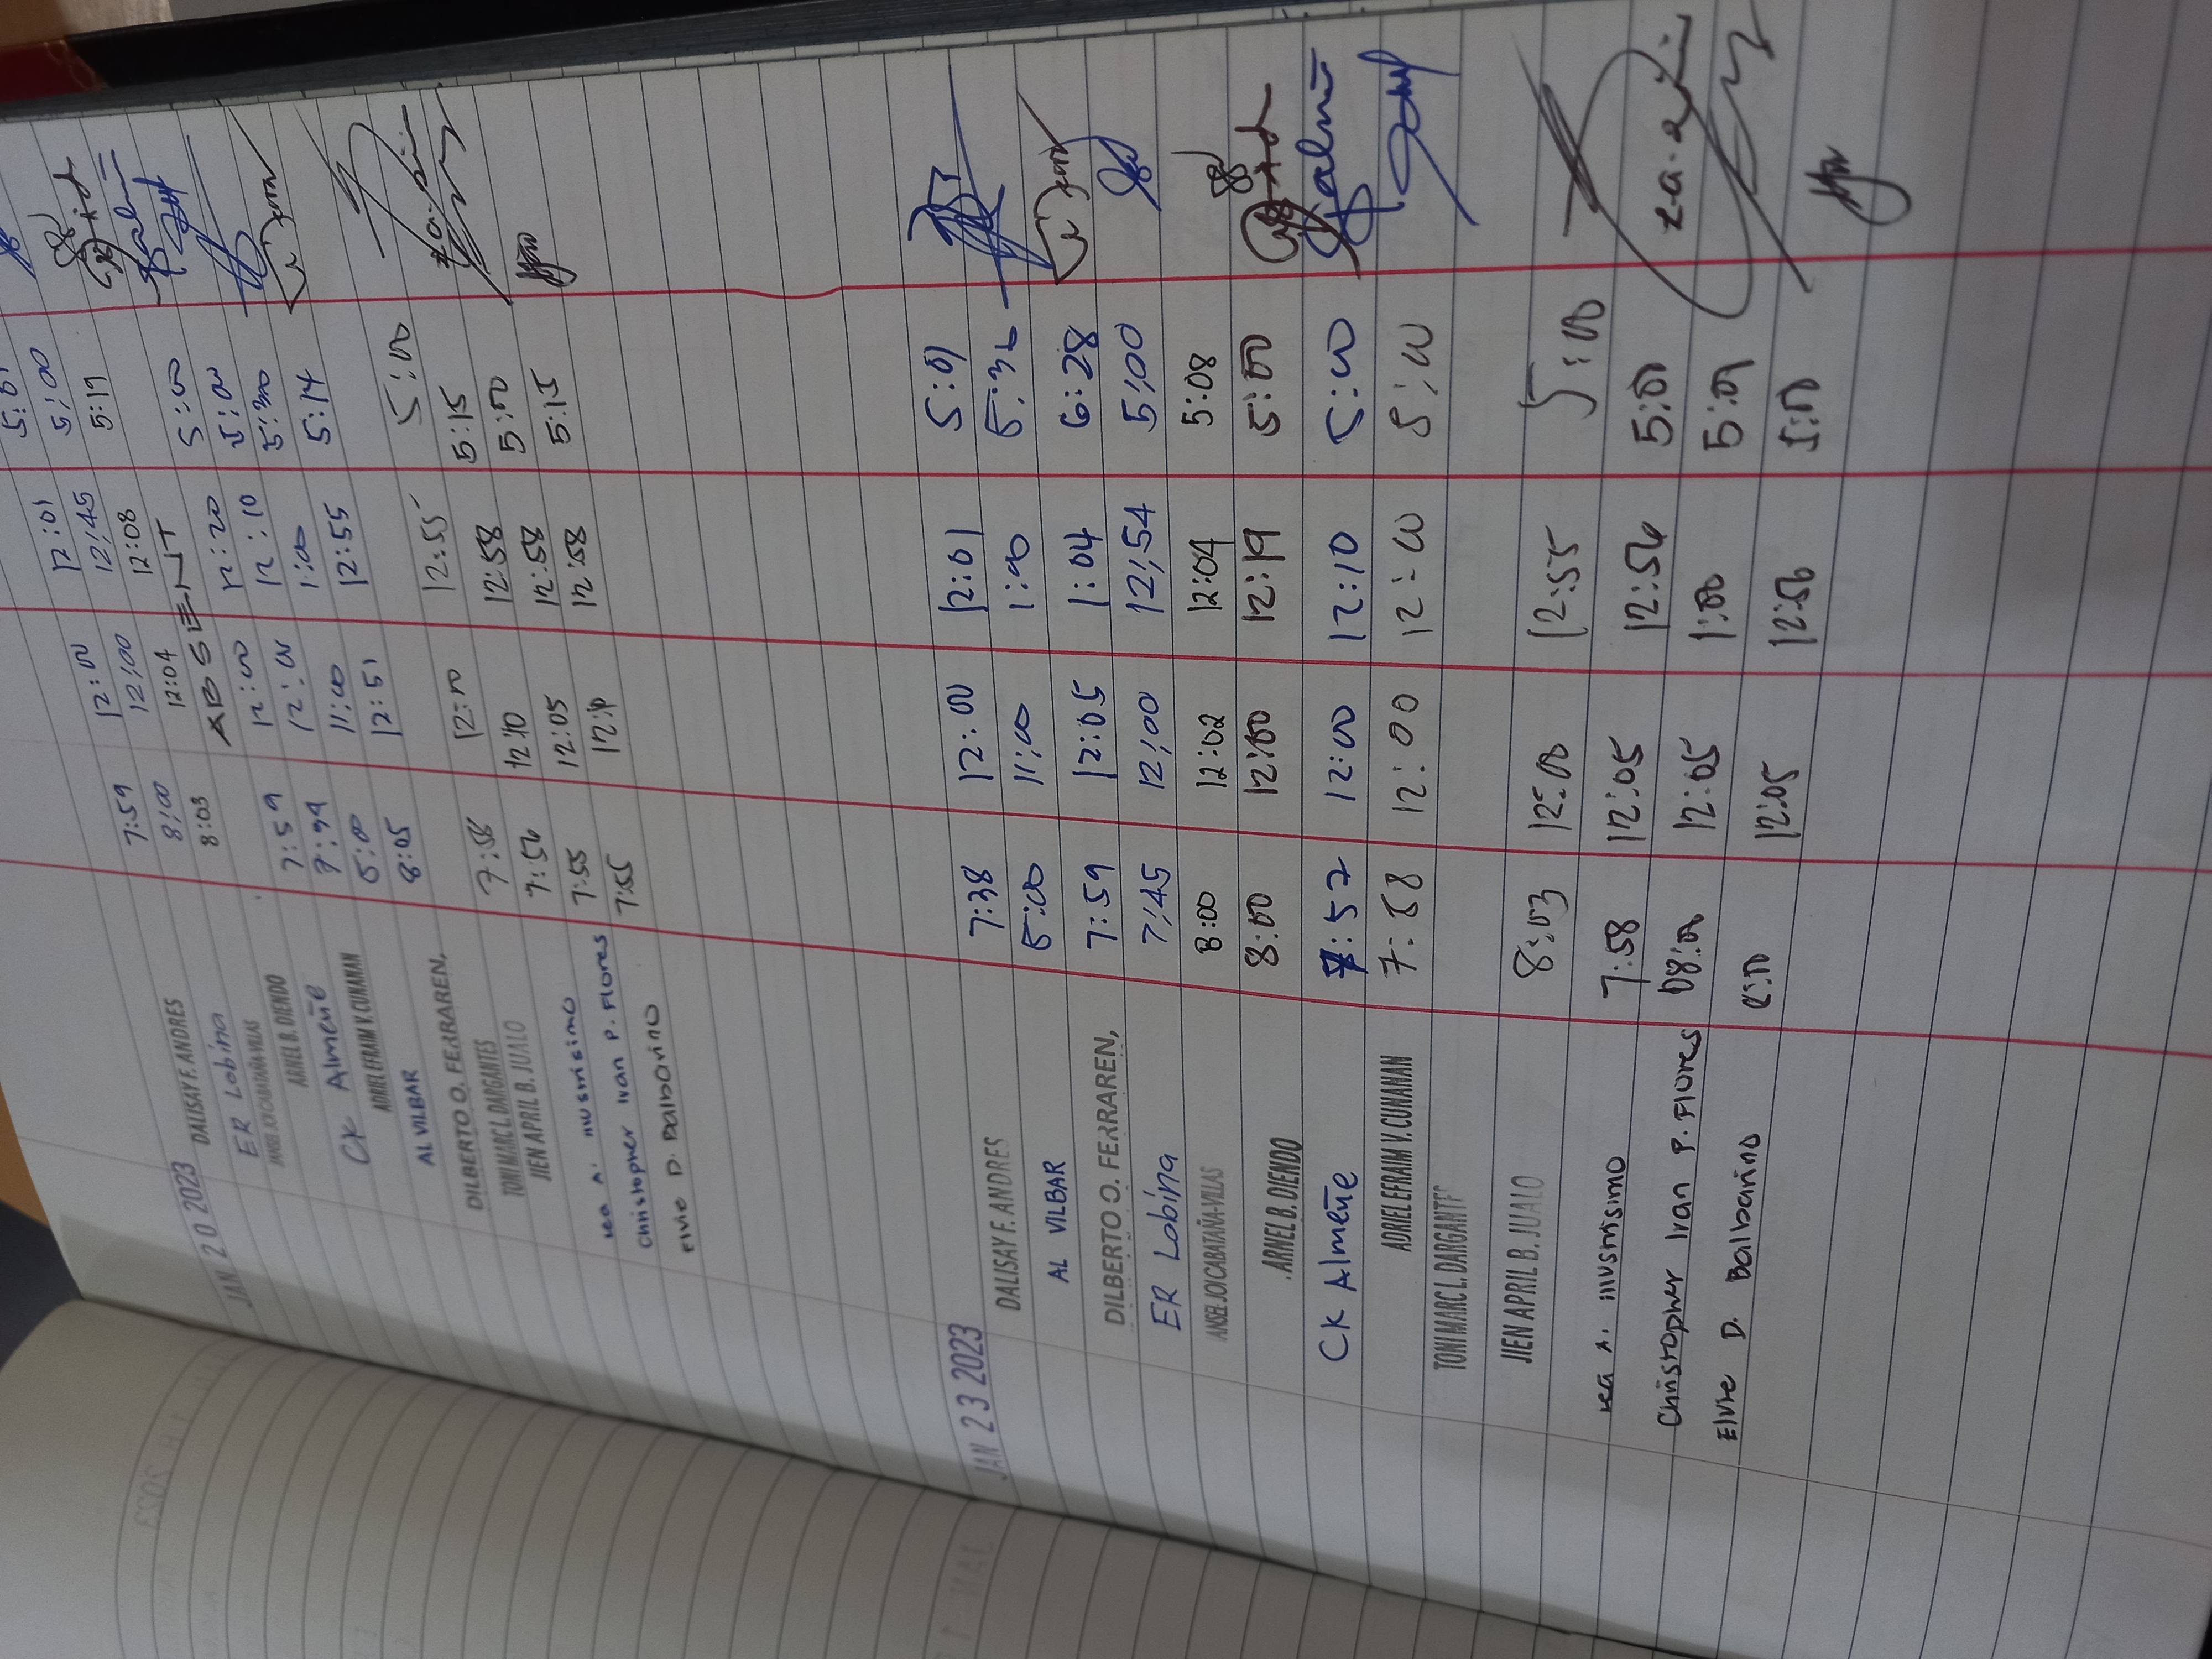 JAN 20 2023
DALISAY F. ANDRES 7:59 12:00 12:01 5:01
ER Lobina 8:00 12:00 12:45 5:00
ANSEL JOI CABATAÑA-VILLAS 8:03 12:04 12:08 5:19
ARNEL B. DIENDO ABSENT
CK Almeñe 7:59 12:00 12:20 5:00
ADRIEL EFRAIM V. CUNANAN 7:59 12:00 12:10 5:00
AL VILBAR 5:00 11:00 1:00 5:30
DILBERTO O. FERRAREN, 8:05 12:51 12:55 5:14
TONI MARC L. DARGANTES
JIEN APRIL B. JUALO 7:56 12:00 12:55 5:00
Lea A. Illustrisimo 7:56 12:10 12:58 5:15
Christopher Ivan P. Flores 7:55 12:05 12:58 5:00
Elvie D. Balbarino 7:55 12:10 12:58 5:15
JAN 23 2023
DALISAY F. ANDRES 7:38 12:00 12:01 5:01
AL VILBAR 5:00 11:00 1:00 5:36
DILBERTO O. FERRAREN, 7:59 12:05 1:04 6:28
ER Lobina 7:45 12:00 12:54 5:00
ANSEL JOI CABATAÑA-VILLAS 8:00 12:02 12:04 5:08
ARNEL B. DIENDO 8:00 12:00 12:19 5:00
CK Almeñe 7:57 12:00 12:10 5:00
ADRIEL EFRAIM V. CUNANAN 7:58 12:00 12:00 5:00
TONI MARC L. DARGANTES
JIEN APRIL B. JUALO 8:03 12:00 12:55 5:00
Lea A. Illustrisimo 7:58 12:05 12:56 5:01
Christopher Ivan P. Flores 08:00 12:05 1:00 5:01
Elvie D. Balbarino 8:00 12:05 12:56 5:00